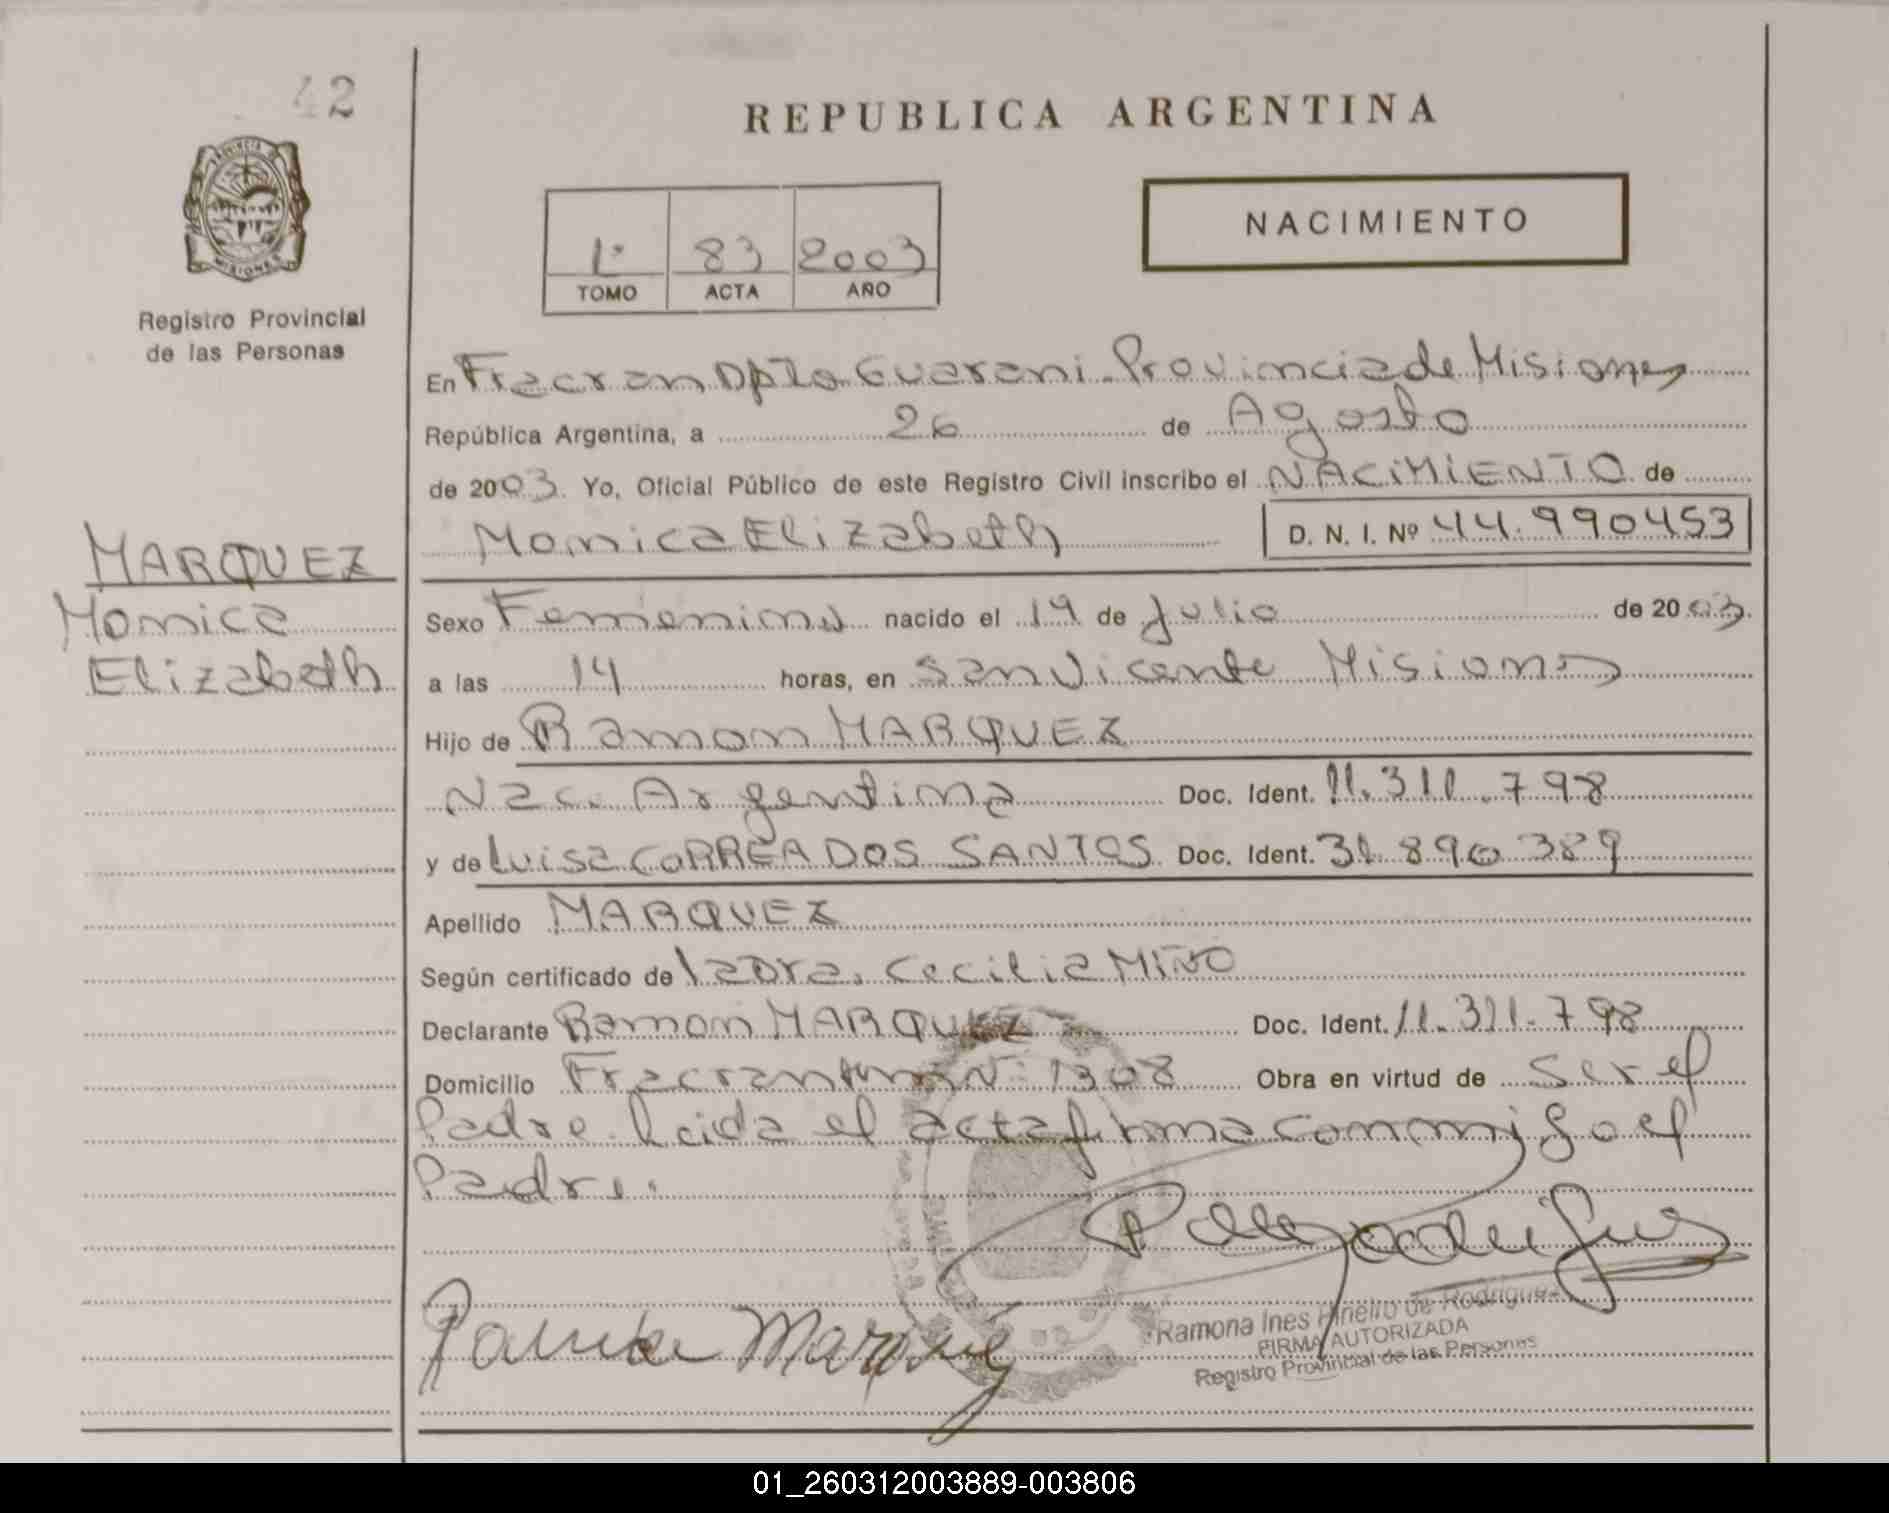 42
REPUBLICA ARGENTINA
PROVINCIA DE
MISIONES
Registro Provincial
de las Personas
1º 83 2003
TOMO ACTA AÑO
NACIMIENTO
En Fracran Dpto Guarani Provincia de Misiones
República Argentina, a 26 de Agosto
de 2003 Yo, Oficial Público de este Registro Civil inscribo el NACIMIENTO de
Monica Elizabeth D. N. I. Nº 44.990453
MARQUEZ
Monica
Elizabeth
Sexo Femenino nacido el 19 de Julio de 2003.
a las 14 horas, en San Vicente Misiones
Hijo de Ramon MARQUEZ
Nac. Argentina Doc. Ident. 11.311.798
y de Luisa CORREA DOS SANTOS Doc. Ident. 31.890389
Apellido MARQUEZ
Según certificado de la Dra. Cecilia MIÑO
Declarante Ramon MARQUEZ Doc. Ident. 11.311.798
Domicilio Fracran Nº 1308 Obra en virtud de ser el
Padre leida el acta firma conmigo el
Padre.
Ramona Ines Piñeiro de Rodriguez
FIRMA AUTORIZADA
Registro Provincial de las Personas
01_260312003889-003806